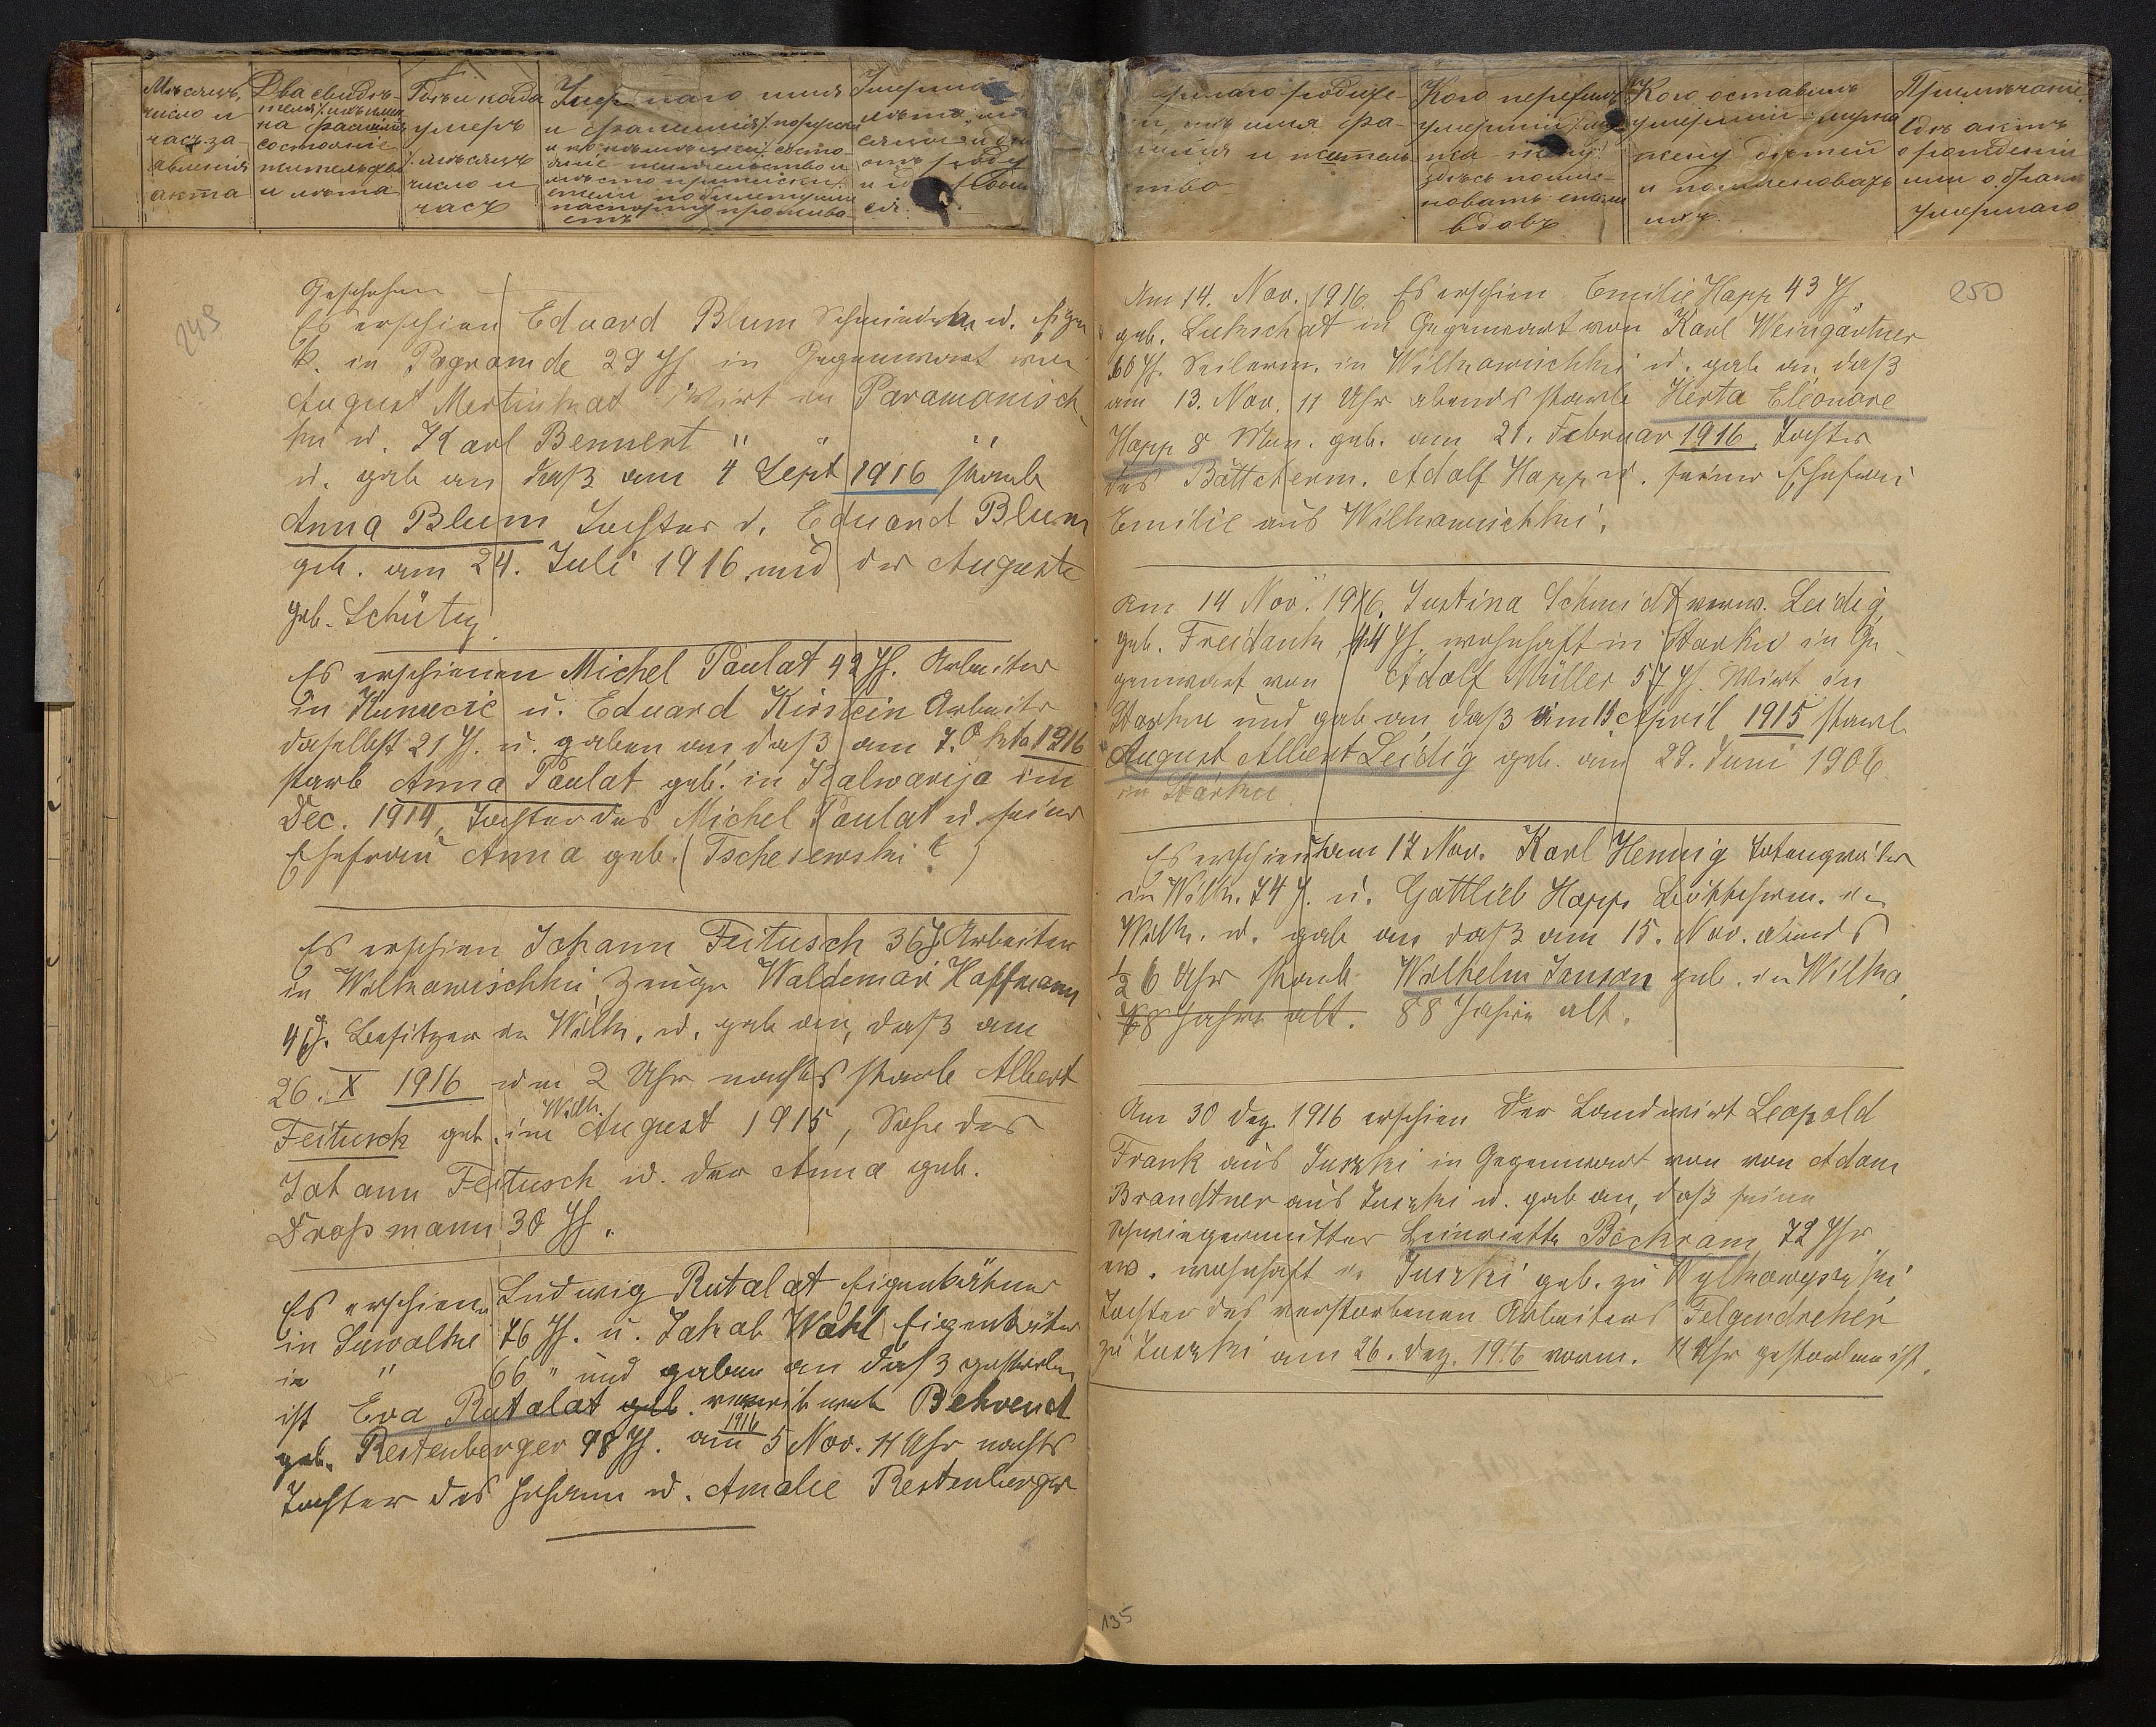 Мѣсяцъ,
число и
часъ за-
явленія
акта
Два свидѣ-
теля, ихъ имя
на фамилія
состояніе
жительства
и лѣта
Годъ и когда
умеръ
мѣсяцъ
число и
часъ
Умершаго имя
и фамилія
Умершаго родите-
имя фа-
и житель-
ство
Кого пережилъ
умершій
жену
здѣсь поиме-
новать
вдовъ
Кого оставилъ
умершій мужа
жену дѣтей
и поименовать
ихъ.
Примѣчаніе
объ актѣ
о рожденіи
или о бракѣ
умершаго
249
Geschehen
Es erschien Eduard Blum Schmiedem. u. Eigen
k. in Pogramde 29 JJ in Gegenwart von
August Mertinkat Wirt in Paramonisch-
ken u. Karl Bennert " " "
u. gab an daß am 4 Sept 1916 starb
Anna Blum Tochter d. Eduard Blum
geb. am 24. Juli 1916 und der Auguste
geb. Schütz
Es erschienen Michel Paulat 42 JJ. Arbeiter
in Kunecie u. Eduard Kirstein Arbeiter
daselbst 21 J. u. gaben an daß am 7. Okto 1916
starb Anna Paulat geb. in Kalwarija im
Dec. 1914, Tochter des Michel Paulat u. seiner
Ehefrau Anna geb. (Tschejewski ? )
Es erschien Johann Feitusch 36 J. Arbeiter
in Wilkowischki, Zeuge Waldemar Hoffmann
J. Besitzer in Wilk. u. gab an, daß am
26. X 1916 um 2 Uhr nachts starb Albert
Wilk.
Feitusch geb. im August 1915, Sohn des
Johann Feitusch u. der Anna geb.
Droßmann 30 JJ.
Es erschien Ludwig Rutalat Eigenkätner
in Suwalke 76 JJ. u. Jakob Wahl Eigenkätner
in " 66 " und gaben an daß gestorben
ist Eva Rutalat geb. verwitwet Behrendt
1916
geb. Restenberger 98 JJ. am 5 Nov. 11 Uhr nachts
Tochter des Johann u. Amalie Restenberger
250
Am 14. Nov. 1916. Es erschien Emilie Happ 43 JJ.
geb. Lukschat in Gegenwart von Karl Weingärtner
60 JJ. Seilerm. in Wilkowischki u. gab an daß
am 13. Nov. 11 Uhr abends starb Herta Eléonore
Happ 8 Mon. geb. am 21. Februar 1916. Tochter
des Böttcherm. Adolf Happ u. seiner Ehefrau
Emilie aus Wilkowischki.
Am 14 Nov. 1916. Justina Schmidt verw. Leidig
geb. Freidank, 44 JJ. wohnhaft in Starke in Ge-
genwart von Adolf Müller 57 JJ. Wirt in
Starke und gab an, daß am 15 April 1915 starb
August Albert Leidig geb. am 29. Juni 1906
in Starke.
Es erschien am 17 Nov. Karl Hennig Totengräber
in Wilk. 74 J. u. Gottlieb Happ Böttcherm. in
Wilk. u. gab an daß am 15. Nov. abends
1/2 6 Uhr starb Wilhelm Janson geb. in Wilko.
78 Jahre alt. 88 Jahre alt.
Am 30 Dez. 1916 erschien der Landwirt Leopold
Frank aus Juszki in Gegenwart von von Adam
Brandtner aus Juszki u. gab an, daß seine
Schwiegermutter Heinriette Bockram 72 Jhr
ev. wohnhaft in Juszki geb. zu Wylkowyszki
Tochter des verstorbenen Arbeiters Felgendreher
zu Juszki am 26. Dez. 1916 vorm. 11 Uhr gestorben ist.
135